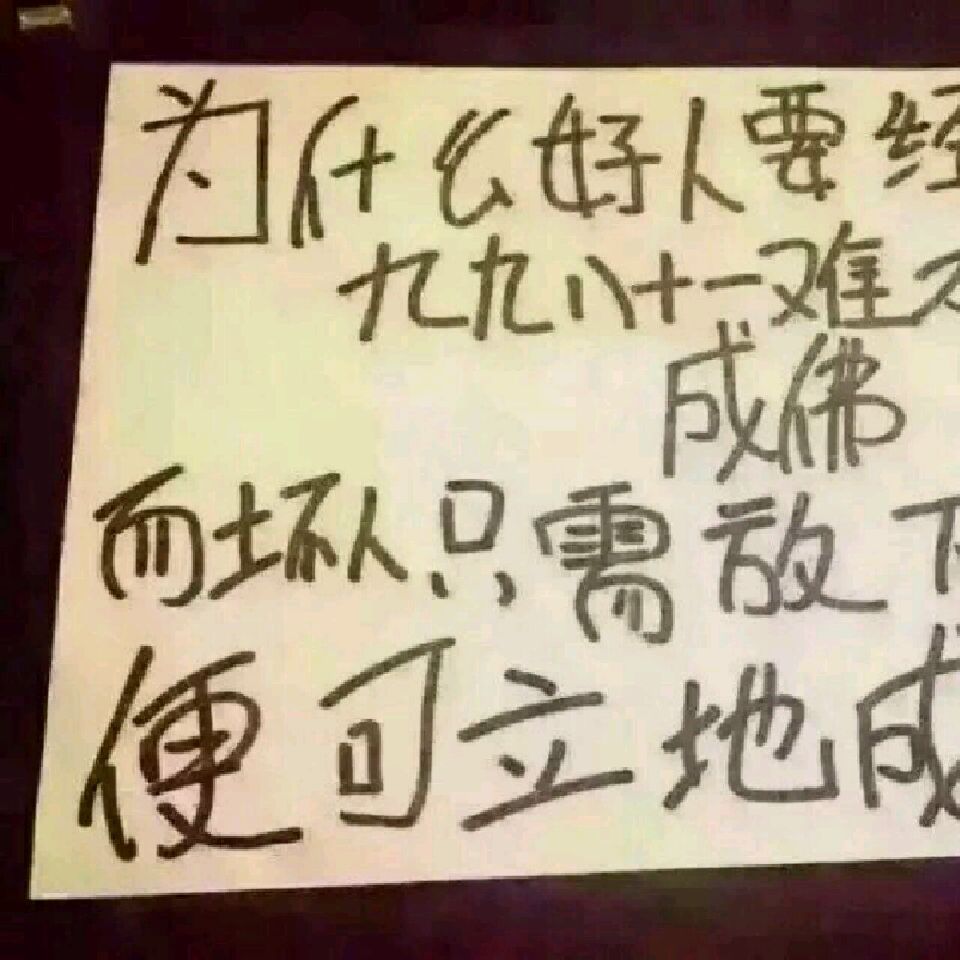 为什么好人要经
九九八十一难
成佛
而坏人只需放下
便可立地成